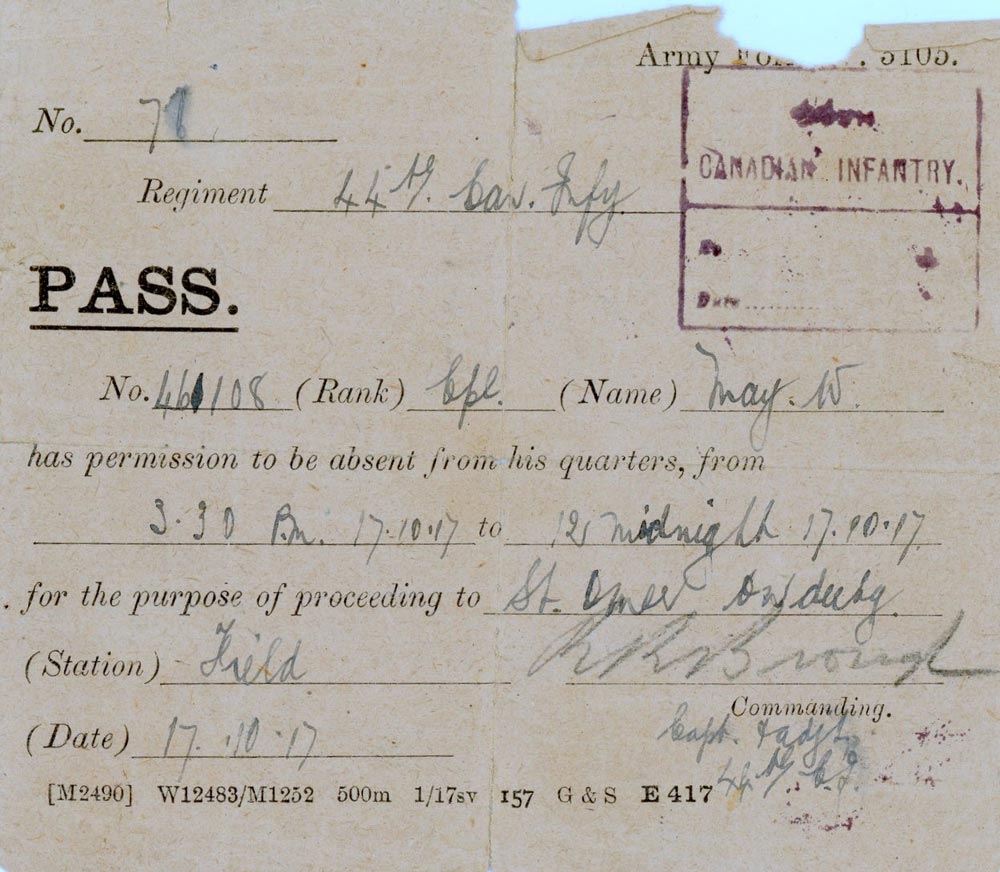 Army 5105.
No. 78
CANADIAN INFANTRY.
Regiment 44th. Can. Infy
PASS.
Date
No. 461108 (Rank) Cpl. (Name) May. W.
has permission to be absent from his quarters, from
3.30 P.m. 17.10.17 to 12 midnight 17.10.17
for the purpose of proceeding to St. Omer on duty.
(Station) Field
Commanding.
Capt. & adjt.
(Date) 17.10.17
44th
[M2490] W12483/M1252 500m 1/17sv 157 G & S E 417